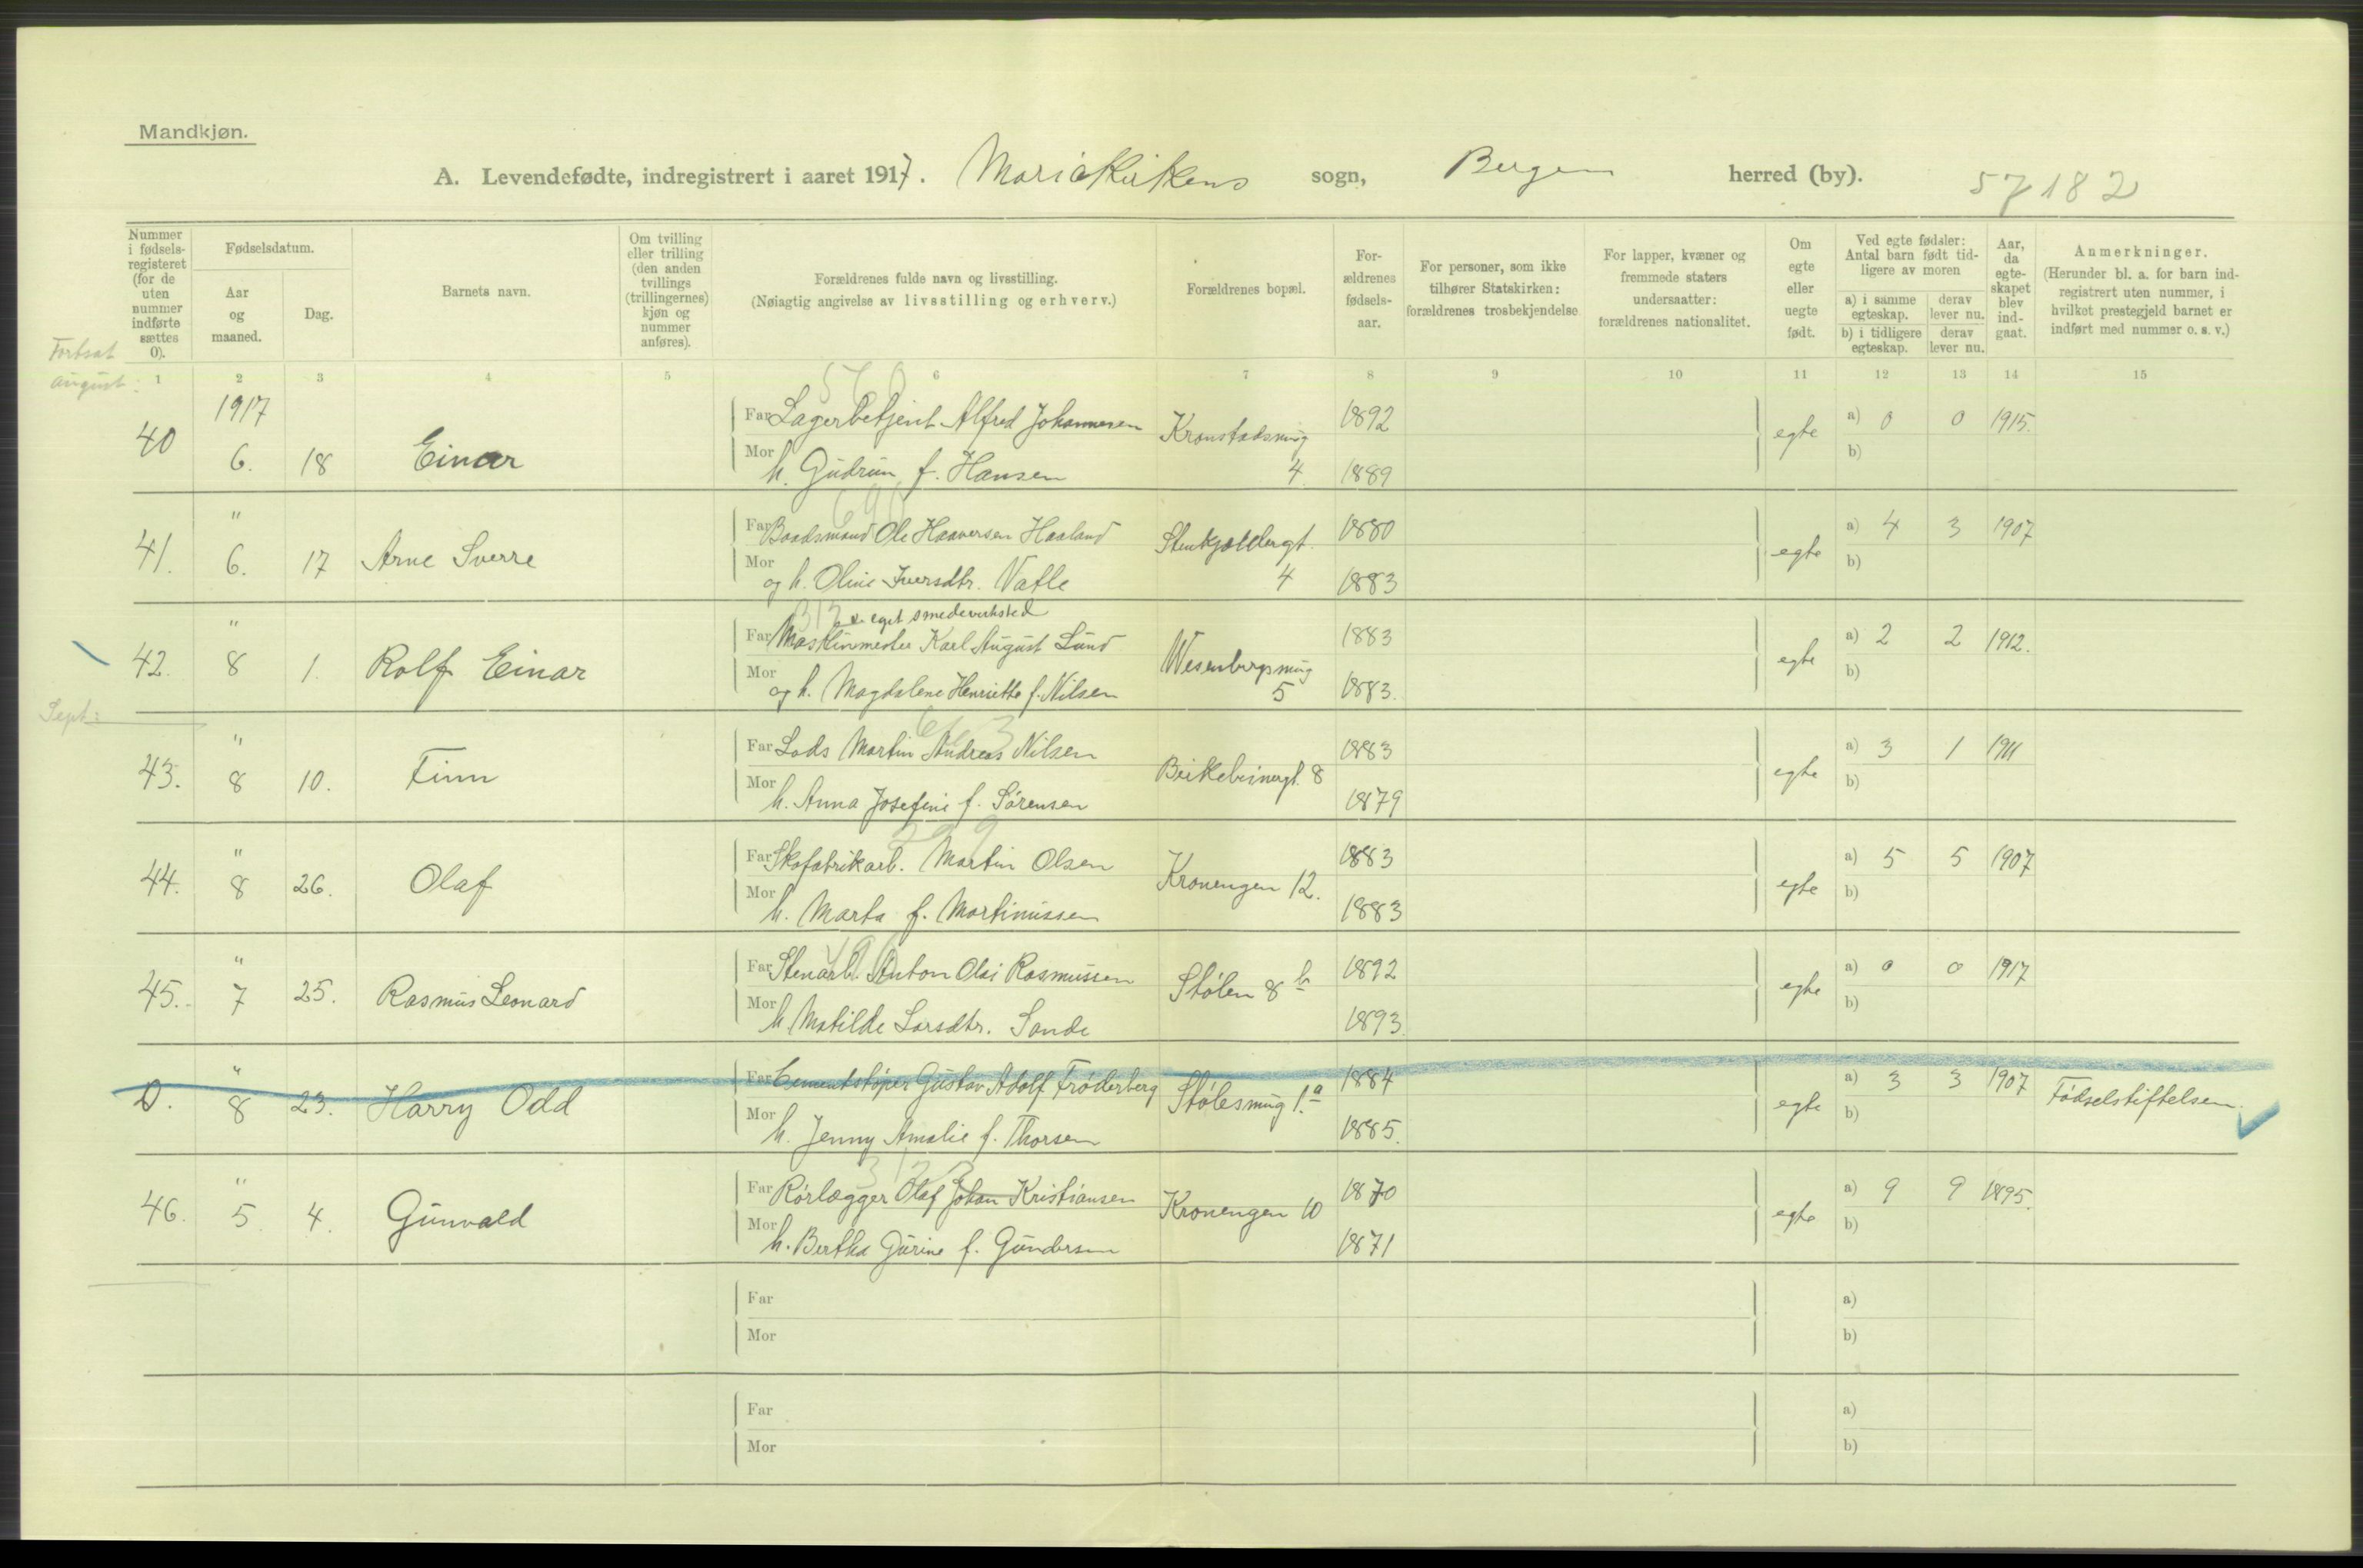 Mandkjøn.
A. Levendefødte, indregistrert i aaret 1917. Mariakirkens sogn, Bergen herred (by).
57182
Nummer i fødsels-registeret (for de uten nummer indførte sættes 0).
Fødselsdatum.
Aar og maaned.
Dag.
Barnets navn.
Om tvilling eller trilling (den anden tvillings (trillingernes) kjøn og nummer anføres).
Forældrenes fulde navn og livsstilling.
(Nøiagtig angivelse av livsstilling og erhverv.)
Forældrenes bopæl.
For-ældrenes fødsels-aar.
For personer, som ikke tilhører Statskirken: forældrenes trosbekjendelse
For lapper, kvæner og fremmede staters undersaatter: forældrenes nationalitet.
Om egte eller uegte født.
Ved egte fødsler: Antal barn født tid-ligere av moren
a) i samme egteskap.
derav lever nu.
b) i tidligere egteskap.
derav lever nu.
Aar, da egte-skapet blev ind-gaat.
Anmerkninger.
(Herunder bl. a. for barn ind-registrert uten nummer, i hvilket prestegjeld barnet er indført med nummer o. s. v.)
Fortsat
august:
1 2 3 4 5 6 7 8 9 10 11 12 13 14 15
1917
40 6. 18 Einar
Far Lagerbetjent Alfred Johannesen Kronstadsmug 1892 egte a) 0 0 1915.
Mor h. Gudrun f. Hansen 4. 1889 b)
"
41. 6. 17 Arne Sverre
Far Baadsmand Ole Haaversen Haaland 1880 egte a) 4 3 1907
Mor og h. Oline Iversdtr. Vatle 4 1883 b)
" eget smedeverksted
42. 8 1. Rolf Einar
Far Maskinmester Karl August Lund Wesenbergsmug 1883 egte a) 2 2 1912.
Mor og h. Magdalene Henriette f. Nilsen 5 1883. b)
Sept:
"
43. 8 10. Finn
Far Lods Martin Andreas Nilsen Beikebinergt. 8 1883 egte a) 3 1 1911
Mor h. Anna Josefine f. Sørensen 1879 b)
299
"
44. 8 26. Olaf
Far Skofabrikarb. Martin Olsen Kronengen 12. 1883 egte a) 5 5 1907
Mor h. Marta f. Martinussen 1883 b)
"
45. 7 25. Rasmus Leonard
Far Stenarb. Anton Olai Rasmussen Stølen 8 b 1892 egte a) 0 0 1917
Mor h. Matilde Larsdtr. Sande 1893. b)
"
0. 8 23. Harry Odd
Far Cementstøper Gustav Adolf Frøderberg Stølesmug 1.a 1884 egte a) 3 3 1907 Fødselstiftelsen.
Mor h. Jenny Amalie f. Thorsen 1885. b)
"
46. 5. 4. Gunvald
Far Rørlægger Olaf Johan Kristiansen Kronengen 10 1870 egte a) 9 9 1895.
Mor h. Bertha Gurine f. Gundersen 1871 b)
Far a)
Mor b)
Far a)
Mor b)